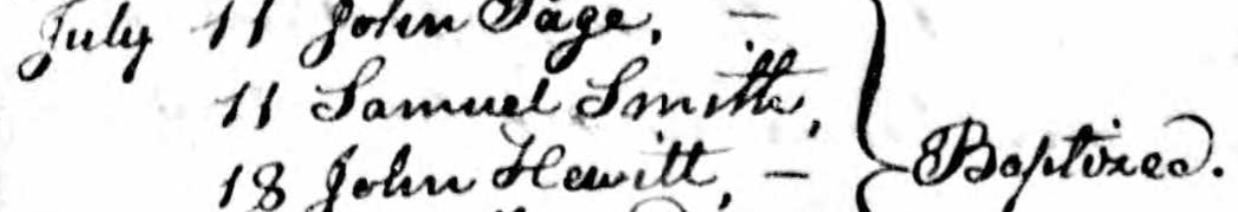 July 11 John Page, —
11 Samuel Smith,
18 John Hewitt, —
Baptized.